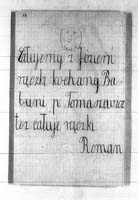 Całujemy z Joziem
rączki kochanej Ba
buni p. Tomaszewicz
też całuje rączki
Roman